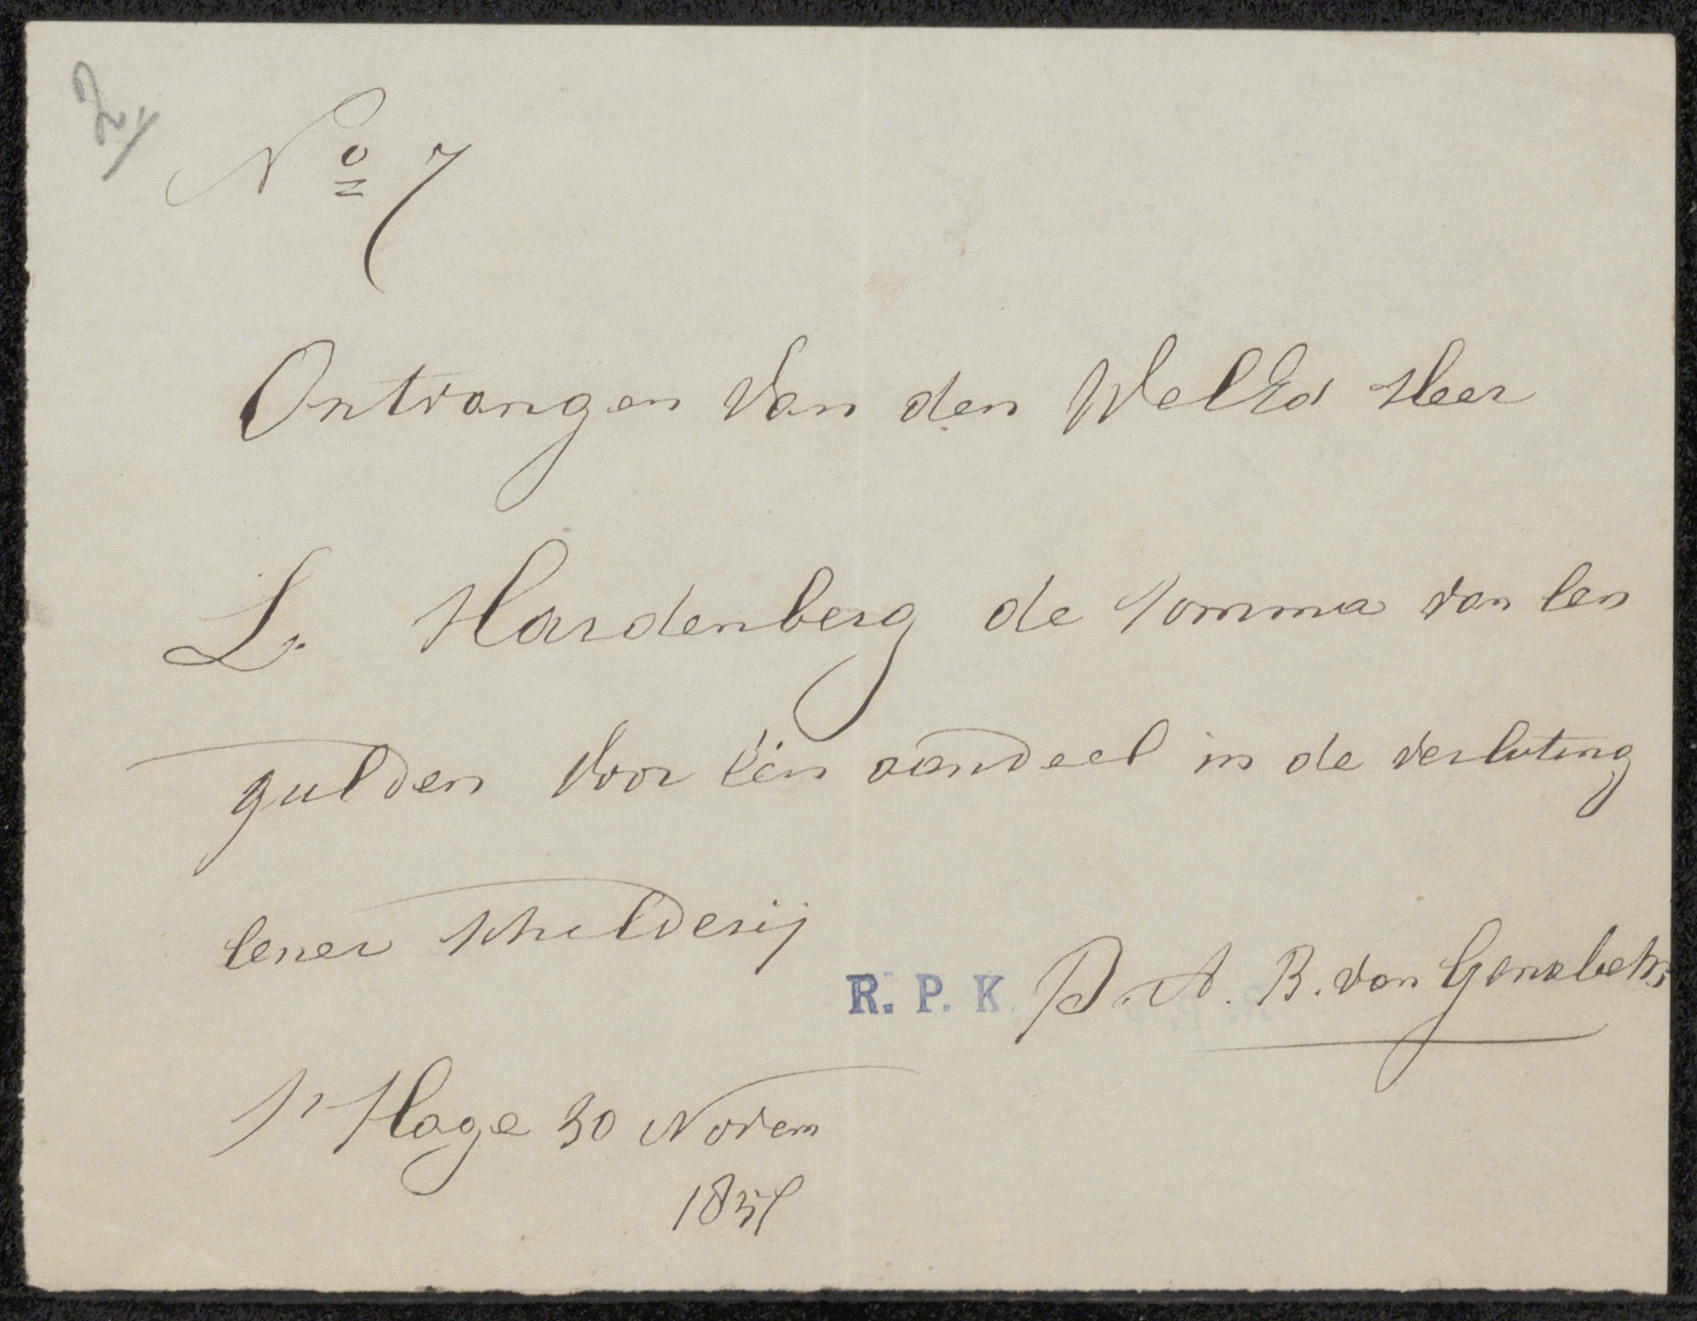 No 7
Ontvangen van den WelEd Heer
L. Hardenberg de somma van een
gulden voor één aandeel in de verloting
eener schilderij
R. P. K. P. A. B. van
s'Hage 30 Novem